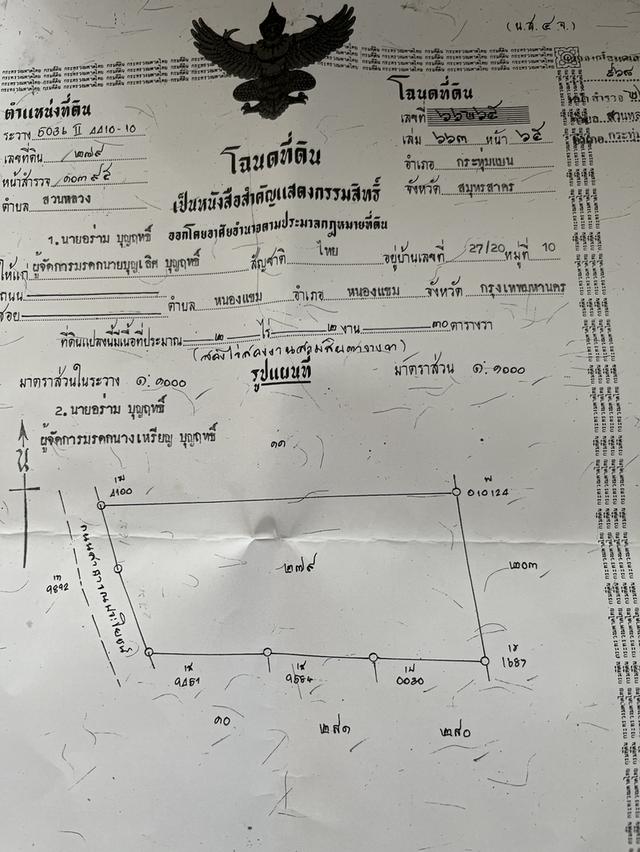 (น.ส.๔ จ.)
ตำแหน่งที่ดิน
ระวาง 5036 II 4410-10
เลขที่ดิน ๒๗๙
หน้าสำรวจ ๑๐๓๙๕
ตำบล สวนหลวง
โฉนดที่ดิน
เลขที่ ๖๖๒๖๕
เล่ม ๖๖๓ หน้า ๖๕
อำเภอ กระทุ่มแบน
จังหวัด สมุทรสาคร
โฉนดที่ดิน
เป็นหนังสือสำคัญแสดงกรรมสิทธิ์
ออกโดยอาศัยอำนาจตามประมวลกฎหมายที่ดิน
1. นายอร่าม บุญฤทธิ์
ให้แก่ ผู้จัดการมรดกนายบุญเลิศ บุญฤทธิ์ สัญชาติ ไทย อยู่บ้านเลขที่ 27/20 หมู่ที่ 10
ถนน
ซอย ตำบล หนองแขม อำเภอ หนองแขม จังหวัด กรุงเทพมหานคร
ที่ดินแปลงนี้มีเนื้อที่ประมาณ ๒ ไร่ ๒ งาน ๓๐ ตารางวา
(สองไร่สองงานสามสิบตารางวา)
มาตราส่วนในระวาง ๑:๑๐๐๐ รูปแผนที่ มาตราส่วน ๑:๑๐๐๐
2. นายอร่าม บุญฤทธิ์
ผู้จัดการมรดกนางเหรียญ บุญฤทธิ์
น
๑๑
4100
010124
๒๗๙
๒๐๓
9892
1687
9451
9584
0030
๑๐
๒๘๑
๒๘๐